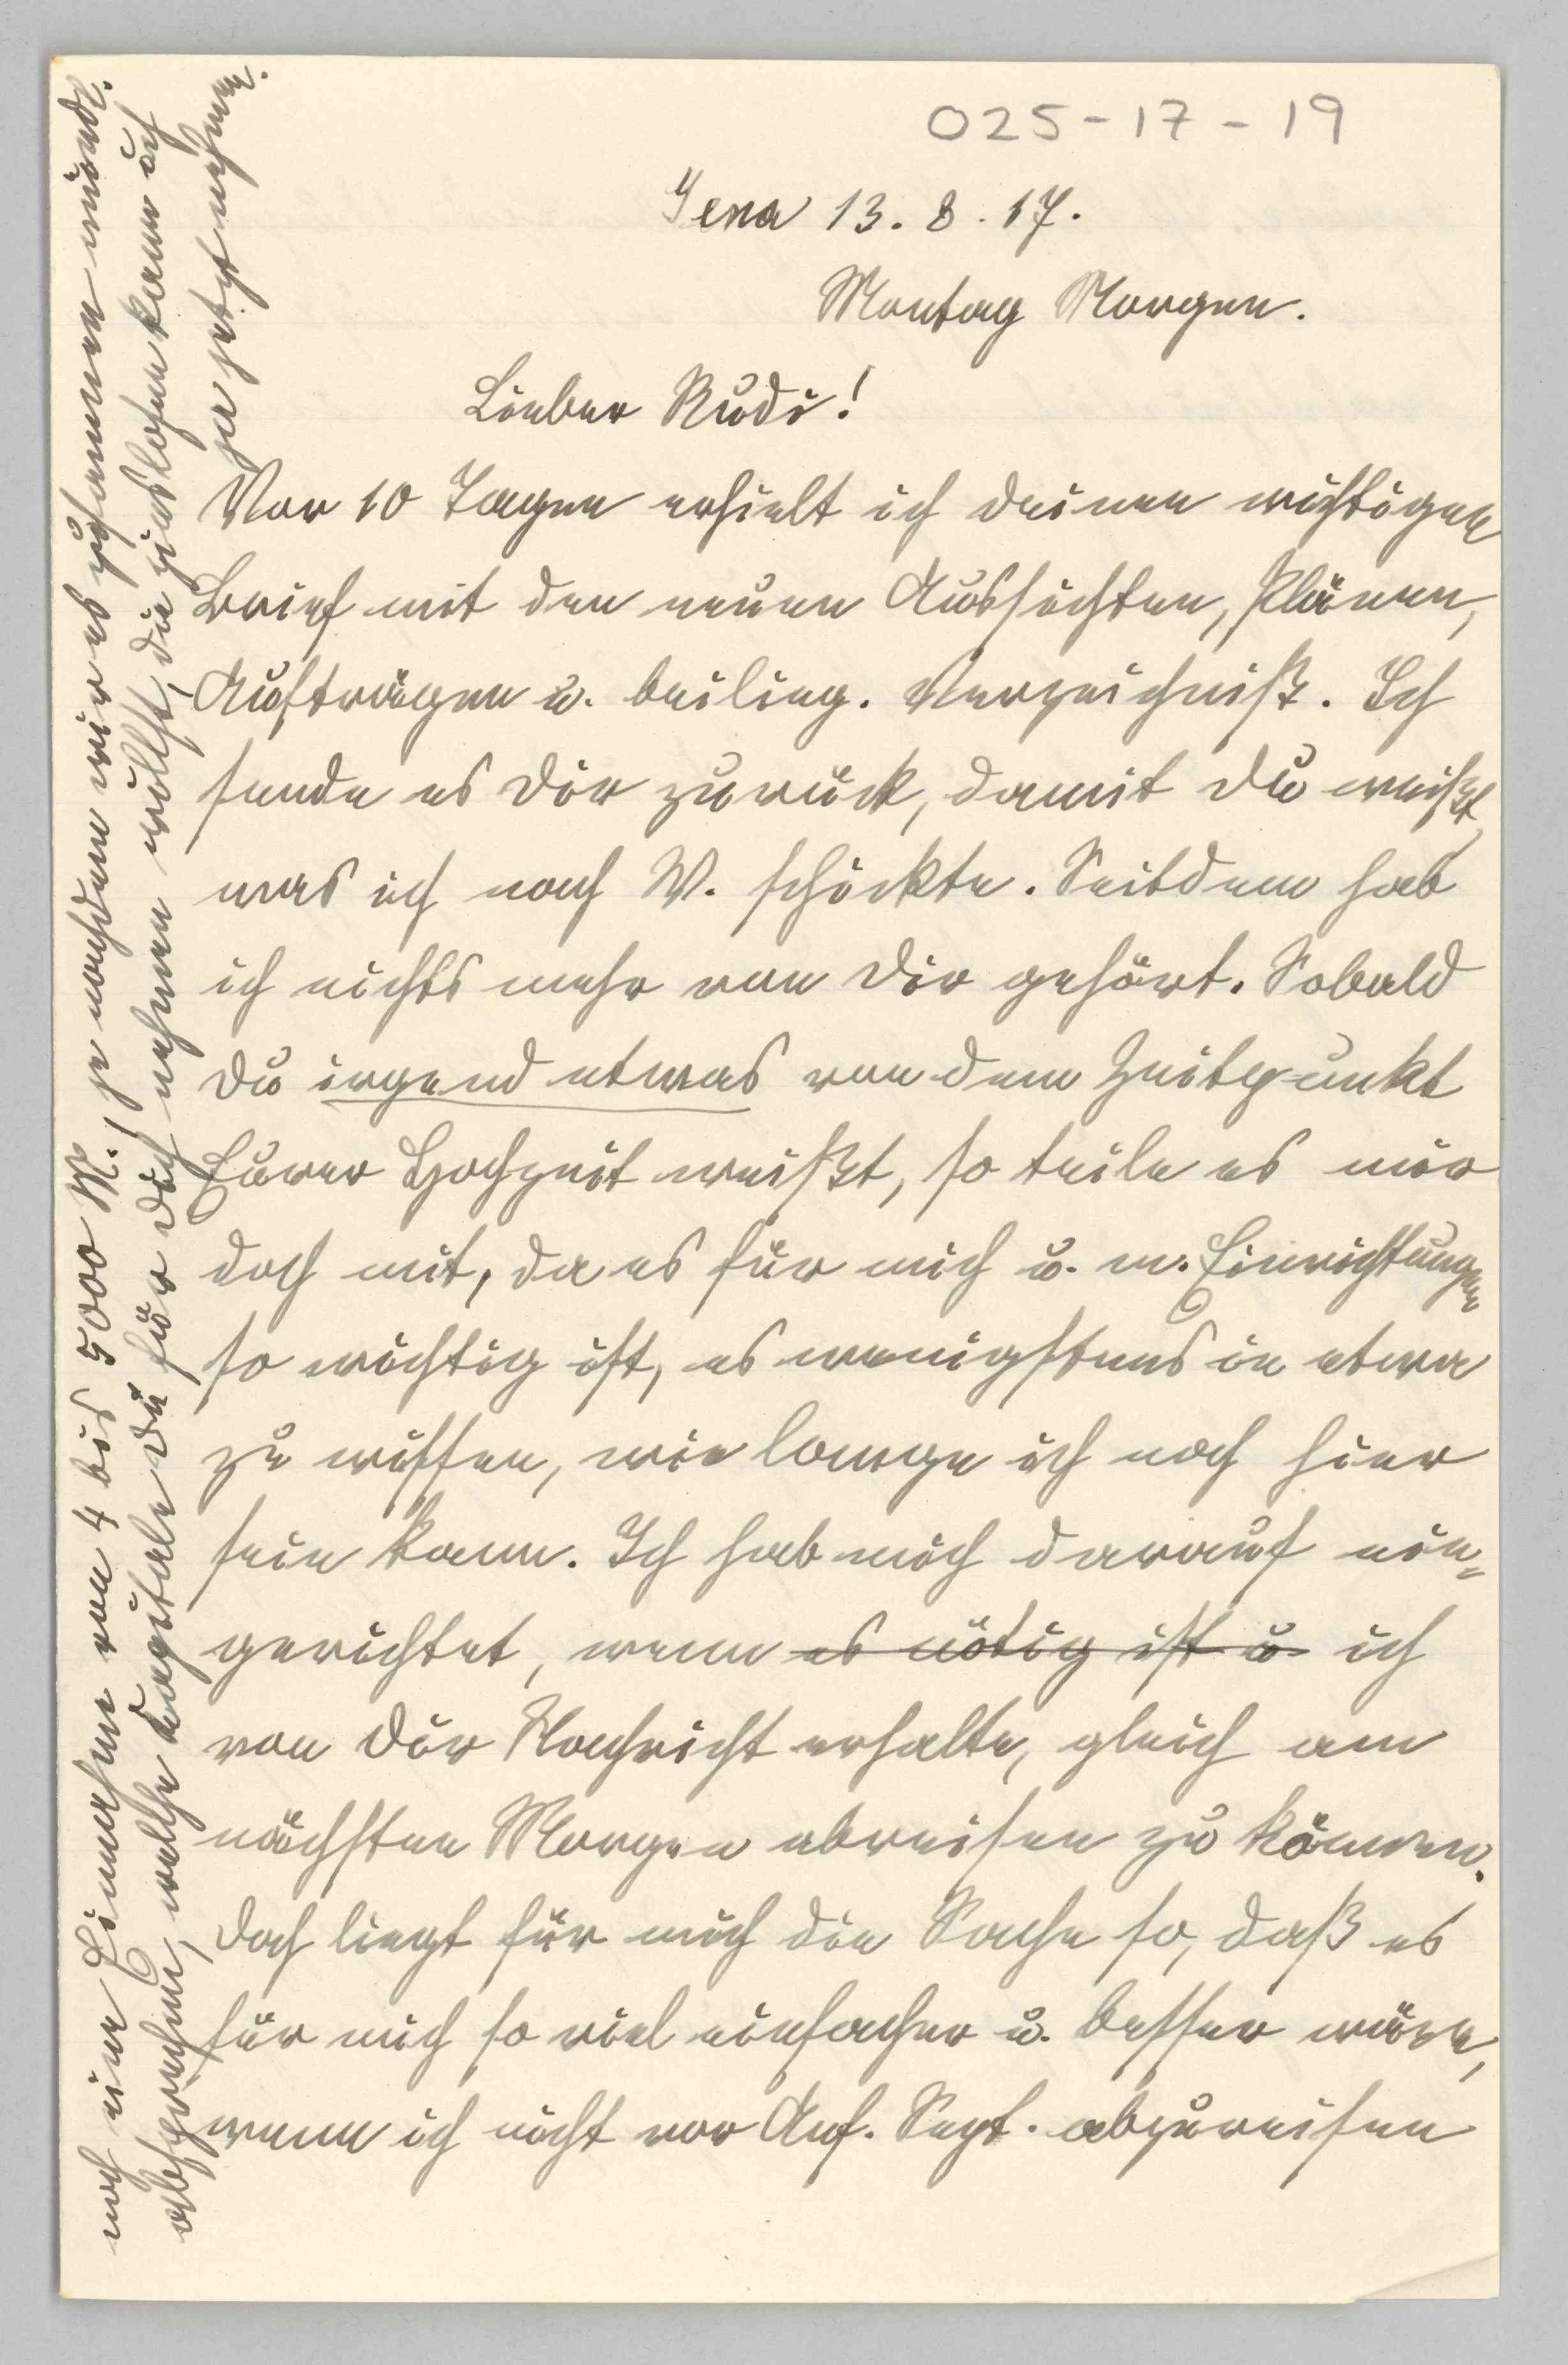 025-17-19
Jena 13. 8. 17.
Montag Morgen.
Lieber Rudi!
Vor 10 Tagen erhielt ich deinen wichtigen
Brief mit den neuen Aussichten, Plänen,
Aufträgen u. beilieg. Verzeichniß. Ich
sende es Dir zurück, damit Du weißt,
was ich nach W. schickte. Seitdem hab
ich nichts mehr von Dir gehört. Sobald
Du irgend etwas von dem Zeitpunkt
Eurer Hochzeit weißt, so teile es mir
doch mit, da es für mich u. m. Einrichtungen
so wichtig ist, es wenigstens in etwa
zu wissen, wie lange ich noch hier
sein kann. Ich hab mich darauf ein=
gerichtet, wenn es nötig ist u. ich
von Dir Nachricht erhalte, gleich am
nächsten Morgen abreisen zu können.
Doch liegt für mich die Sache so, daß es
für mich so viel einfacher u. besser wäre,
wenn ich nicht vor Anf. Sept. abzureisen
noch eine Einnahme von 4 bis 5000 M., je nachdem wir es zusammen mündl.
absprechen, welche Kapitale Du für Dich nehmen willst, die zinslosen kann ich
ja jetzt nehmen.